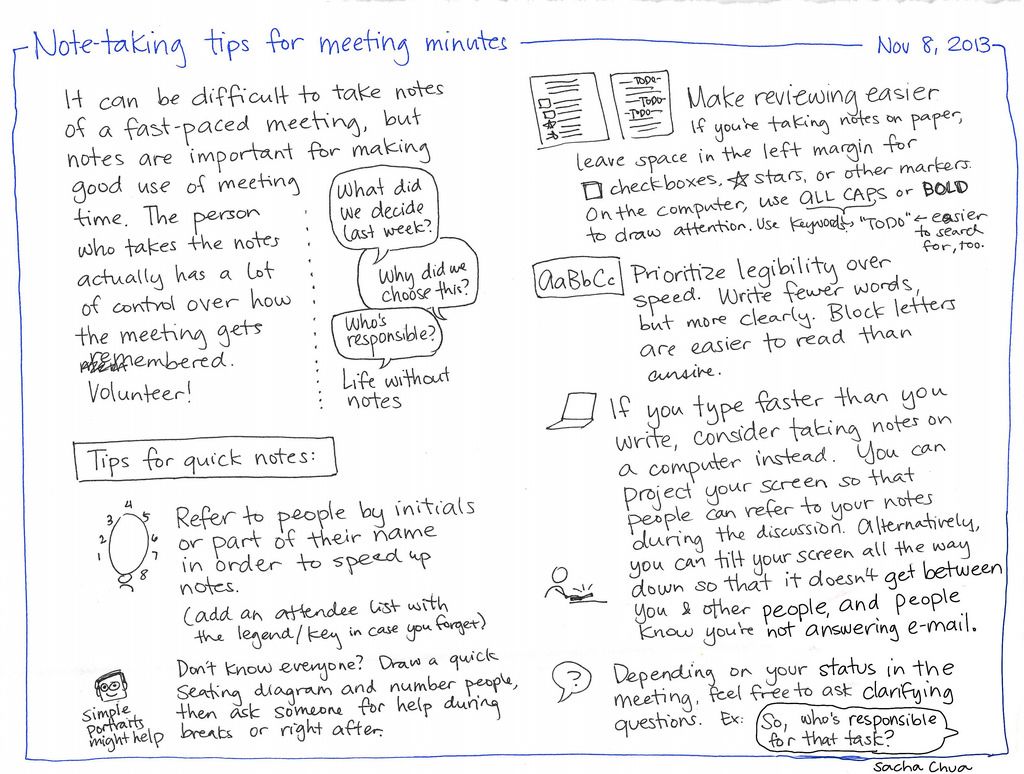 Note-taking tips for meeting minutes
Nov 8, 2013
It can be difficult to take notes
of a fast-paced meeting, but
notes are important for making
good use of meeting
time. The person
who takes the notes
actually has a lot
of control over how
the meeting gets
remembered.
Volunteer!
What did
we decide
last week?
Why did we
choose this?
Who's
responsible?
Life without
notes
Tips for quick notes:
1
2
3
4
5
6
7
8
Refer to people by initials
or part of their name
in order to speed up
notes.
(add an attendee list with
the legend/key in case you forget)
simple
portraits
might help
Don't know everyone? Draw a quick
seating diagram and number people,
then ask someone for help during
breaks or right after.
TODO
TODO
TODO
Make reviewing easier
If you're taking notes on paper,
leave space in the left margin for
checkboxes, ☆ stars, or other markers.
On the computer, use ALL CAPS or BOLD
to draw attention. Use keywords, "TODO" ← easier
to search
for, too.
AaBbCc
Prioritize legibility over
speed. Write fewer words,
but more clearly. Block letters
are easier to read than
cursive.
If you type faster than you
write, consider taking notes on
a computer instead. You can
project your screen so that
people can refer to your notes
during the discussion. Alternatively,
you can tilt your screen all the way
down so that it doesn't get between
you & other people, and people
know you're not answering e-mail.
?
Depending on your status in the
meeting, feel free to ask clarifying
questions. Ex:
So, who's responsible
for that task?
Sacha Chua